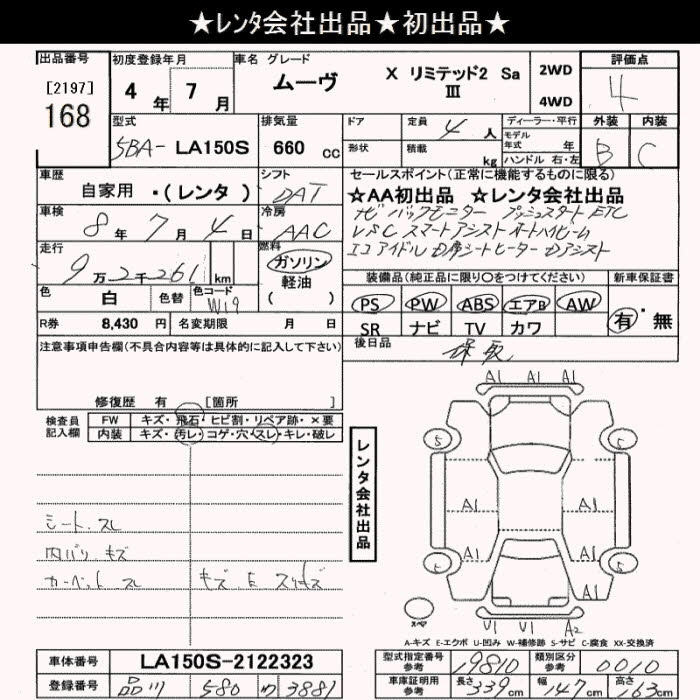 ★レンタ会社出品★初出品★
出品番号 初度登録年月 車名 グレード 評価点
[2197] 4年 7月 ムーヴ X リミテッド2 Sa 2WD 4
168 Ⅲ 4WD
型式 排気量 ドア 定員 4人 ディーラー・平行 外装 内装
モデル年式 年
5BA- LA150S 660 cc 形状 積載 kg ハンドル 右・左 B C
車歴 シフト セールスポイント(正常に機能するものに限る)
自家用 ・(レンタ) DAT ★AA初出品 ★レンタ会社出品
車検 冷房 ナビ バックモニター プッシュスタート ETC
8年 7月 4日 AAC VSC スマートアシスト オートハイビーム
走行 燃料 エコアイドル D席シートヒーター
9万2千261 km ガソリン
軽油
( )
装備品(純正品に限り○をつけてください) 新車保証書
色 白 色替 色コード W19 PS PW ABS エアB AW 有・無
R券 8,430円 名変期限 月 日 SR ナビ TV カワ
注意事項申告欄(不具合内容等は具体的に記入して下さい) 後日品 保取
修復歴 有 [箇所
検査員記入欄 FW キズ・飛石・ヒビ割・リペア跡・×要
内装 キズ・汚レ・コゲ・穴・スレ・キレ・破レ
A1 A1 A1
5 5
レンタ会社出品
A1 A1
シート スレ
内バリ キズ A1 A1
カーペット スレ キズ E スリキズ 5 5
A1
スペア V1 V1 A2
A-キズ E-エクボ U-凹み W-補修跡 S-サビ C-腐食 XX-交換済
車体番号 LA150S-2122323 型式指定番号 参考 19810 類別区分 参考 0010
登録番号 品川 580 ワ 3881 車庫証明用 参考 長さ 339cm 幅 147cm 高さ 163cm